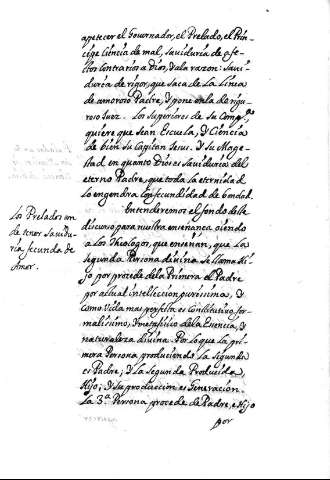 apetecer el Governador, el Prelado, el Prin-
cipe Ciencia de mal, Saviduria de afe-
ctos Contrarios a Dios, y a la razon: Savi-
duria de rigor, que saca de la Linea
de amoroso Padre, y pone en la de rigu-
roso Juez. Los Superiores de su Comp.ª
quiere que sean Escuela, y Ciencia
de bien su Capitan Jesus. Y su Mage-
stad en quanto Dios es Saviduria del
eterno Padre, que toda la eternidad
lo engendra con fecundidad de bondad.
Entenderemos el fondo deste
discurso para nuestra enseñança oiendo
a los Theologos, que enseñan, que la
segunda Persona divina se llama Hi-
jo por que procede de la Primera el Padre
por actual inteleccion purissima, y
como Vida mas perfecta es Constitutivo for-
malissimo, y metafisico de la Esencia, y
naturaleza divina. Por lo que la pri-
mera Persona produciendo la segunda
es Padre; y la segunda Producida
Hijo; y su produccion es Generacion.
La 3.ª Persona procede de Padre, e Hijo
por
Los Prelados an
de tener Savidu-
ria fecunda de
Amor.